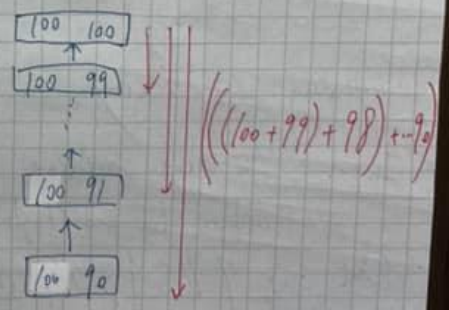 100 100
100 99
⋮
100 91
100 90
((((100 + 99) + 98) + ... 90)